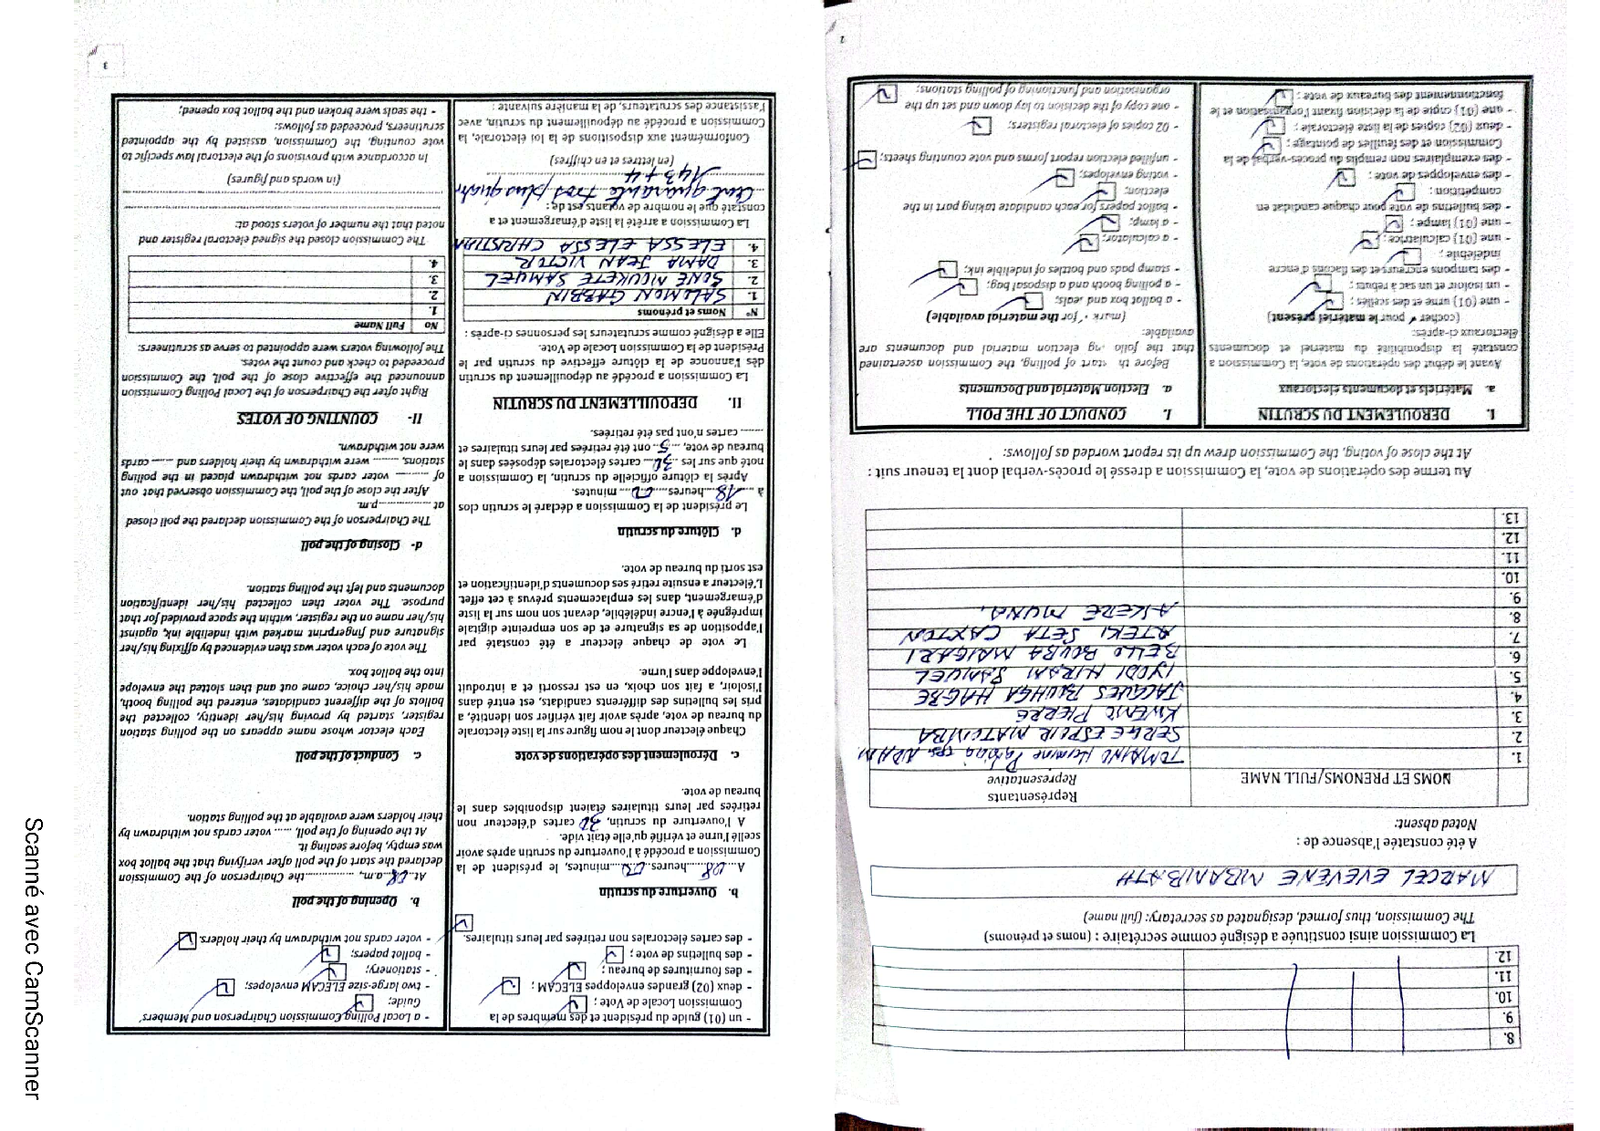 8.
9.
10.
11.
12.
La Commission ainsi constituée a désigné comme secrétaire : (noms et prénoms)
The Commission, thus formed, designated as secretary: (full name)
MARCEL EVEVENE NIBANIBATH
A été constatée l'absence de :
Noted absent:
NOMS ET PRENOMS/FULL NAME
Représentants
Representative
1. TOMAINO Hermine Patricia eps NDAM
2. SERGE ESPOIR MATOMBA
3. KWEMO PIERRE
4. JACQUES BOUHGA HAGBE
5. IYODI HIRAM SAMUEL
6. BELLO BOUBA MAIGARI
7. ATEKI SETA CAXTON
8. AKERE MUNA.
9.
10.
11.
12.
13.
Au terme des opérations de vote, la Commission a dressé le procès-verbal dont la teneur suit :
At the close of voting, the Commission drew up its report worded as follows:
I. DEROULEMENT DU SCRUTIN
a. Matériels et documents électoraux
Avant le début des opérations de vote, la Commission a
constaté la disponibilité du matériel et documents
électoraux ci-après:
(cocher ✓ pour le matériel présent)
- une (01) urne et des scellés ;
- un isoloir et un sac à rebuts ;
- des tampons encreurs et des flacons d'encre
indélébile ;
- une (01) calculatrice ;
- une (01) lampe ;
- des bulletins de vote pour chaque candidat en
compétition ;
- des enveloppes de vote ;
- des exemplaires non remplis du procès-verbal de la
Commission et des feuilles de pointage ;
- deux (02) copies de la liste électorale ;
- une (01) copie de la décision fixant l'organisation et le
fonctionnement des bureaux de vote ;
I. CONDUCT OF THE POLL
a. Election Material and Documents
Before th start of polling, the Commission ascertained
that the follo ng election material and documents are
available:
(mark ✓ for the material available)
- a ballot box and seals;
- a polling booth and a disposal bag;
- stamp pads and bottles of indelible ink;
- a calculator;
- a lamp;
- ballot papers for each candidate taking part in the
election;
- voting envelopes;
- unfilled election report forms and vote counting sheets;
- 02 copies of electoral registers;
- one copy of the decision to lay down and set up the
organisation and functioning of polling stations;
2
- un (01) guide du président et des membres de la
Commission Locale de Vote ;
- deux (02) grandes enveloppes ELECAM ;
- des fournitures de bureau ;
- des bulletins de vote ;
- des cartes électorales non retirées par leurs titulaires.
b. Ouverture du scrutin
A 08 heures 00 minutes, le président de la
Commission a procédé à l'ouverture du scrutin après avoir
scellé l'urne et vérifié qu'elle était vide.
A l'ouverture du scrutin, 30 cartes d'électeur non
retirées par leurs titulaires étaient disponibles dans le
bureau de vote.
c. Déroulement des opérations de vote
Chaque électeur dont le nom figure sur la liste électorale
du bureau de vote, après avoir fait vérifier son identité, a
pris les bulletins des différents candidats, est entré dans
l'isoloir, a fait son choix, en est ressorti et a introduit
l'enveloppe dans l'urne.
Le vote de chaque électeur a été constaté par
l'apposition de sa signature et de son empreinte digitale
imprégnée à l'encre indélébile, devant son nom sur la liste
d'émargement, dans les emplacements prévus à cet effet.
L'électeur a ensuite retiré ses documents d'identification et
est sorti du bureau de vote.
d. Clôture du scrutin
Le président de la Commission a déclaré le scrutin clos
à 18 heures 00 minutes.
Après la clôture officielle du scrutin, la Commission a
noté que sur les 30 cartes électorales déposées dans le
bureau de vote, 5 ont été retirées par leurs titulaires et
...... cartes n'ont pas été retirées.
II. DEPOUILLEMENT DU SCRUTIN
La Commission a procédé au dépouillement du scrutin
dès l'annonce de la clôture effective du scrutin par le
Président de la Commission Locale de Vote.
Elle a désigné comme scrutateurs les personnes ci-après :
N° Noms et prénoms
1. SALIMON GABBIN
2. SONE MOUKETE SAMUEL
3. DAMA JEAN VICTOR
4. ELESSA ELESSA CHRISTIAN
La Commission a arrêté la liste d'émargement et a
constaté que le nombre de votants est de :
Cent quarante trois plus quatre
143 + 4
(en lettres et en chiffres)
Conformément aux dispositions de la loi électorale, la
Commission a procédé au dépouillement du scrutin, avec
l'assistance des scrutateurs, de la manière suivante :
- a Local Polling Commission Chairperson and Members'
Guide;
- two large-size ELECAM envelopes;
- stationery;
- ballot papers;
- voter cards not withdrawn by their holders.
b. Opening of the poll
At 08 a.m, ............... the Chairperson of the Commission
declared the start of the poll after verifying that the ballot box
was empty, before sealing it.
At the opening of the poll, ...... voter cards not withdrawn by
their holders were available at the polling station.
c. Conduct of the poll
Each elector whose name appears on the polling station
register, started by proving his/her identity, collected the
ballots of the different candidates, entered the polling booth,
made his/her choice, came out and then slotted the envelope
into the ballot box.
The vote of each voter was then evidenced by affixing his/her
signature and fingerprint marked with indelible ink, against
his/her name on the register, within the space provided for that
purpose. The voter then collected his/her identification
documents and left the polling station.
d- Closing of the poll
The Chairperson of the Commission declared the poll closed
at ...............p.m.
After the close of the poll, the Commission observed that out
of ......... voter cards not withdrawn placed in the polling
stations, ........ were withdrawn by their holders and ...... cards
were not withdrawn.
II- COUNTING OF VOTES
Right after the Chairperson of the Local Polling Commission
announced the effective close of the poll, the Commission
proceeded to check and count the votes.
The following voters were appointed to serve as scrutineers:
No Full Name
1.
2.
3.
4.
The Commission closed the signed electoral register and
noted that the number of voters stood at:
(in words and figures)
In accordance with provisions of the electoral law specific to
vote counting, the Commission, assisted by the appointed
scrutineers, proceeded as follows:
- the seals were broken and the ballot box opened;
3
Scanné avec CamScanner